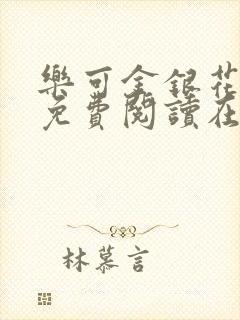 樂可金銀花
免費閱讀在
林慕言